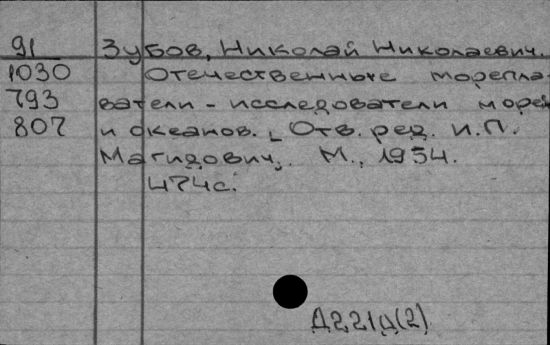 91 Зубов, Николай Николаевич.
1030 Отечественные морепла-
793 ватели - исследователи морей
807 и океанов. Отв. ред. И.П.
Магидович. М., 1954.
474с.
Д221д(2)